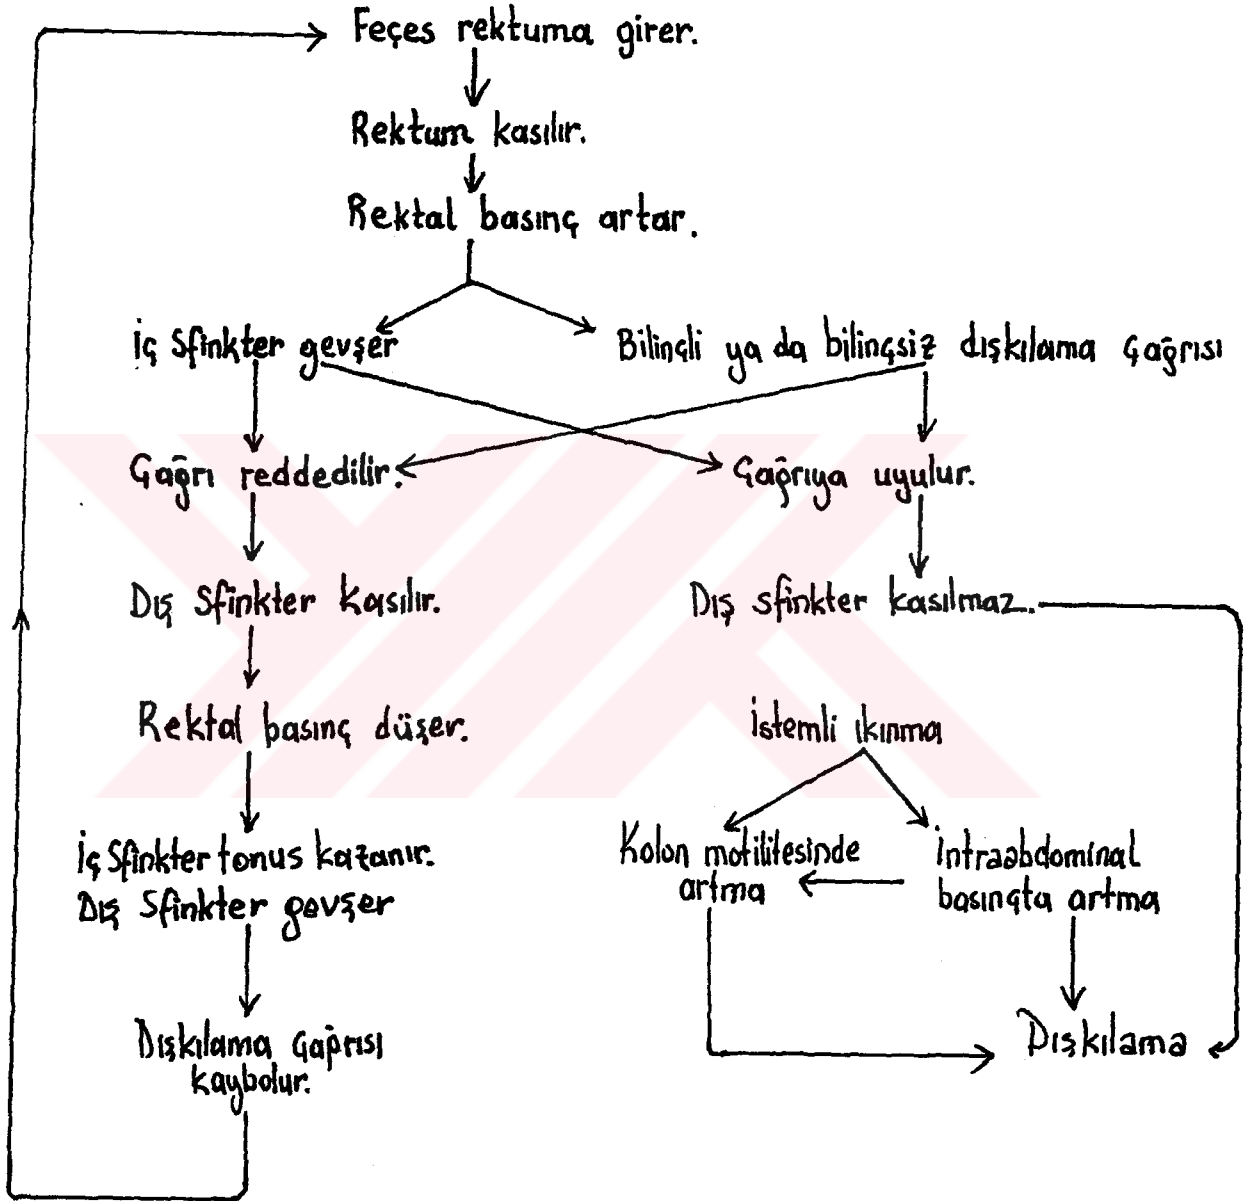 Feçes rektuma girer.
Rektum kasılır.
Rektal basınç artar.
İç Sfinkter gevşer
Bilinçli ya da bilinçsiz dışkılama çağrısı
Çağrı reddedilir.
Çağrıya uyulur.
Dış Sfinkter kasılır.
Dış sfinkter kasılmaz.
Rektal basınç düşer.
İstemli ıkınma
İç Sfinkter tonus kazanır.
Dış Sfinkter gevşer
Kolon motilitesinde
artma
İntraabdominal
basınçta artma
Dışkılama çağrısı
kaybolur.
Dışkılama